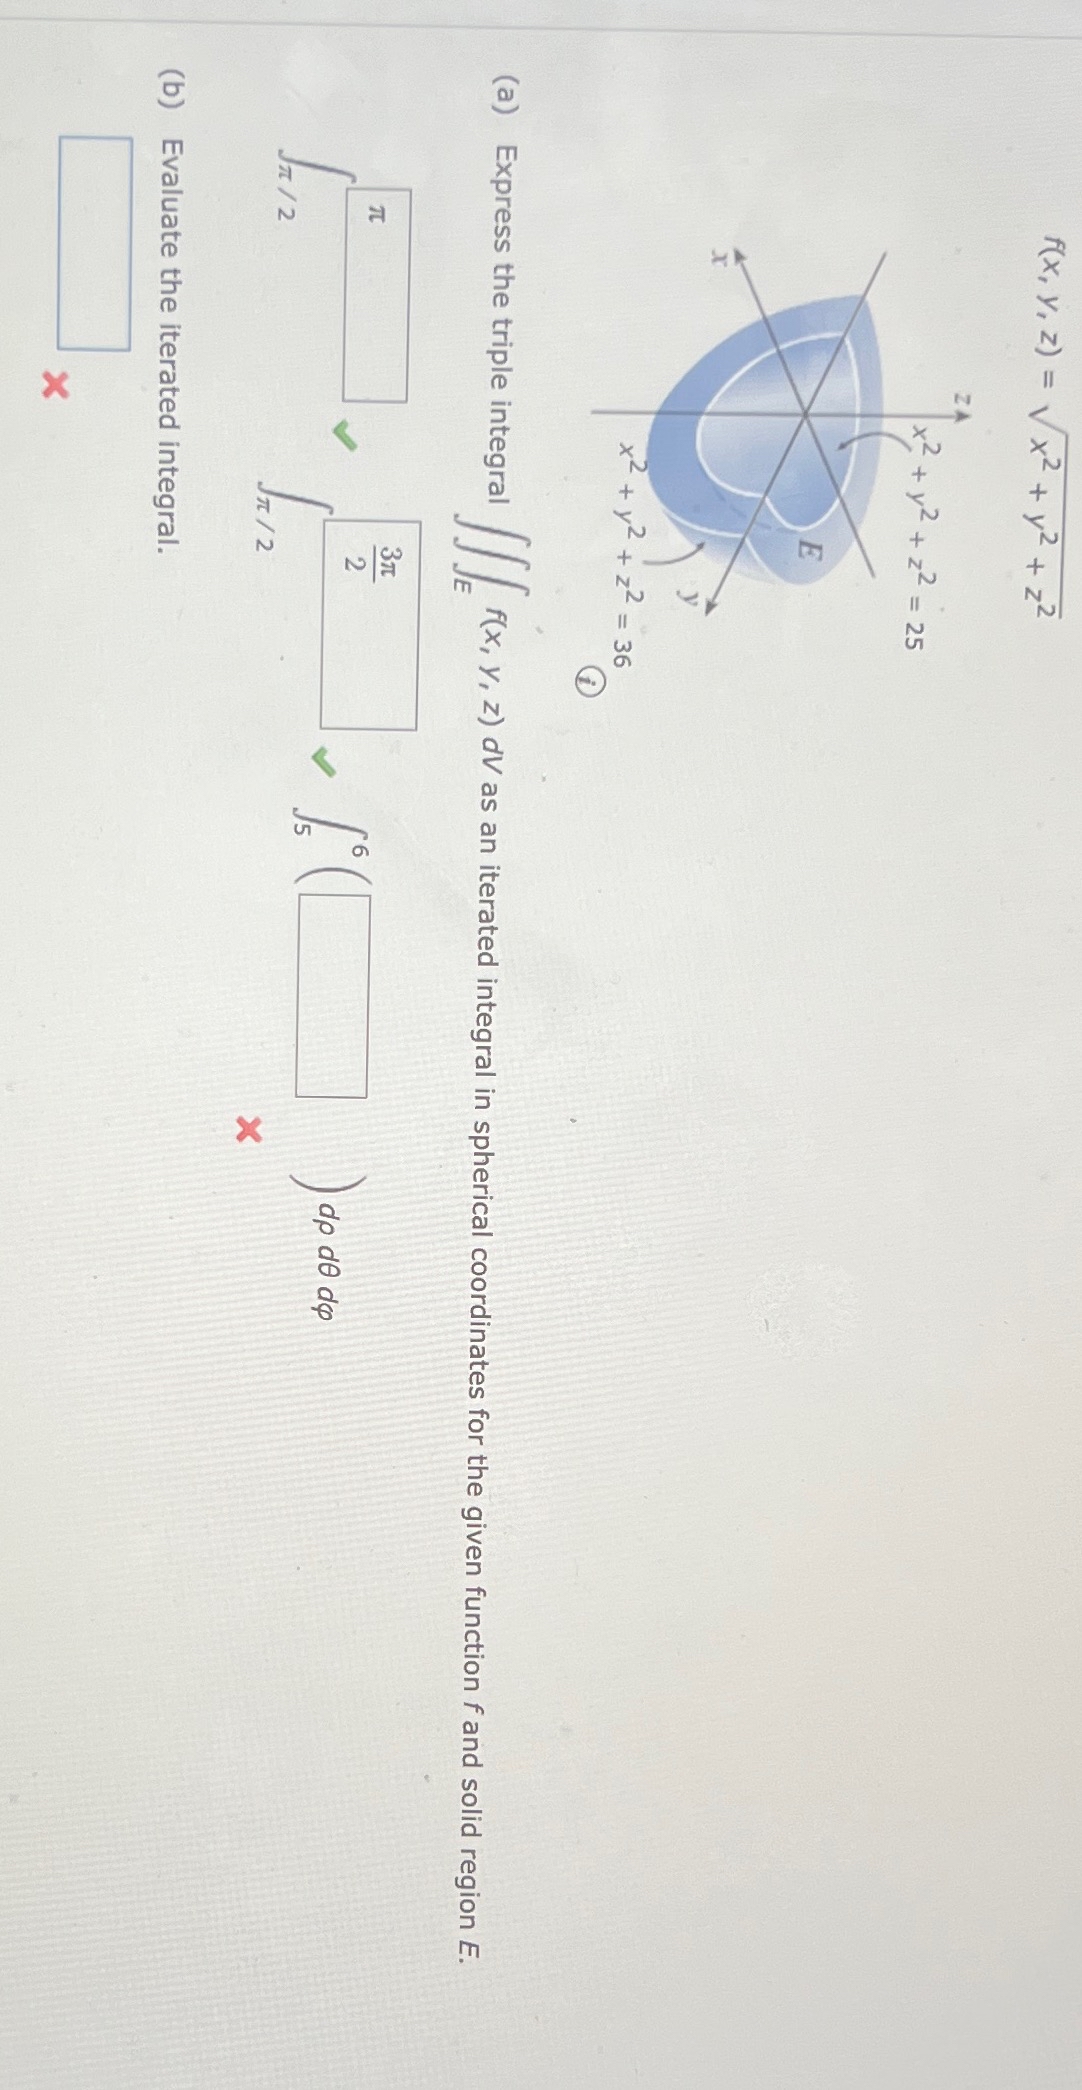 f(x, y, z) = √x² + y² + z²
z
x² + y² + z² = 25
E
x
y
x² + y² + z² = 36
i
(a) Express the triple integral ∫∫∫_E f(x, y, z) dV as an iterated integral in spherical coordinates for the given function f and solid region E.
∫_π/2^π ∫_π/2^3π/2 ∫_5^6 ( ) dρ dθ dφ
(b) Evaluate the iterated integral.